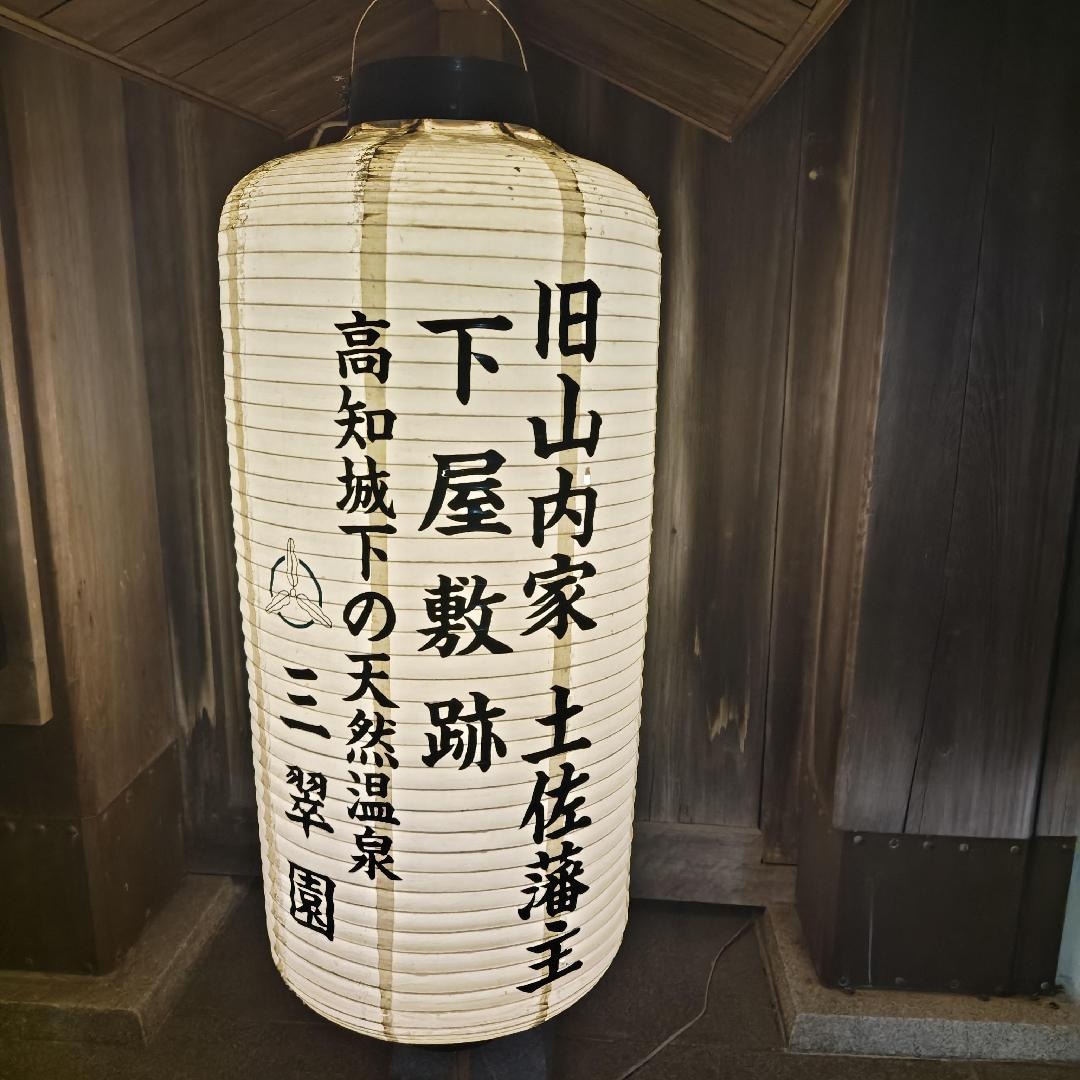 旧山内家 土佐藩主
下屋敷跡
高知城下の天然温泉
三翠園